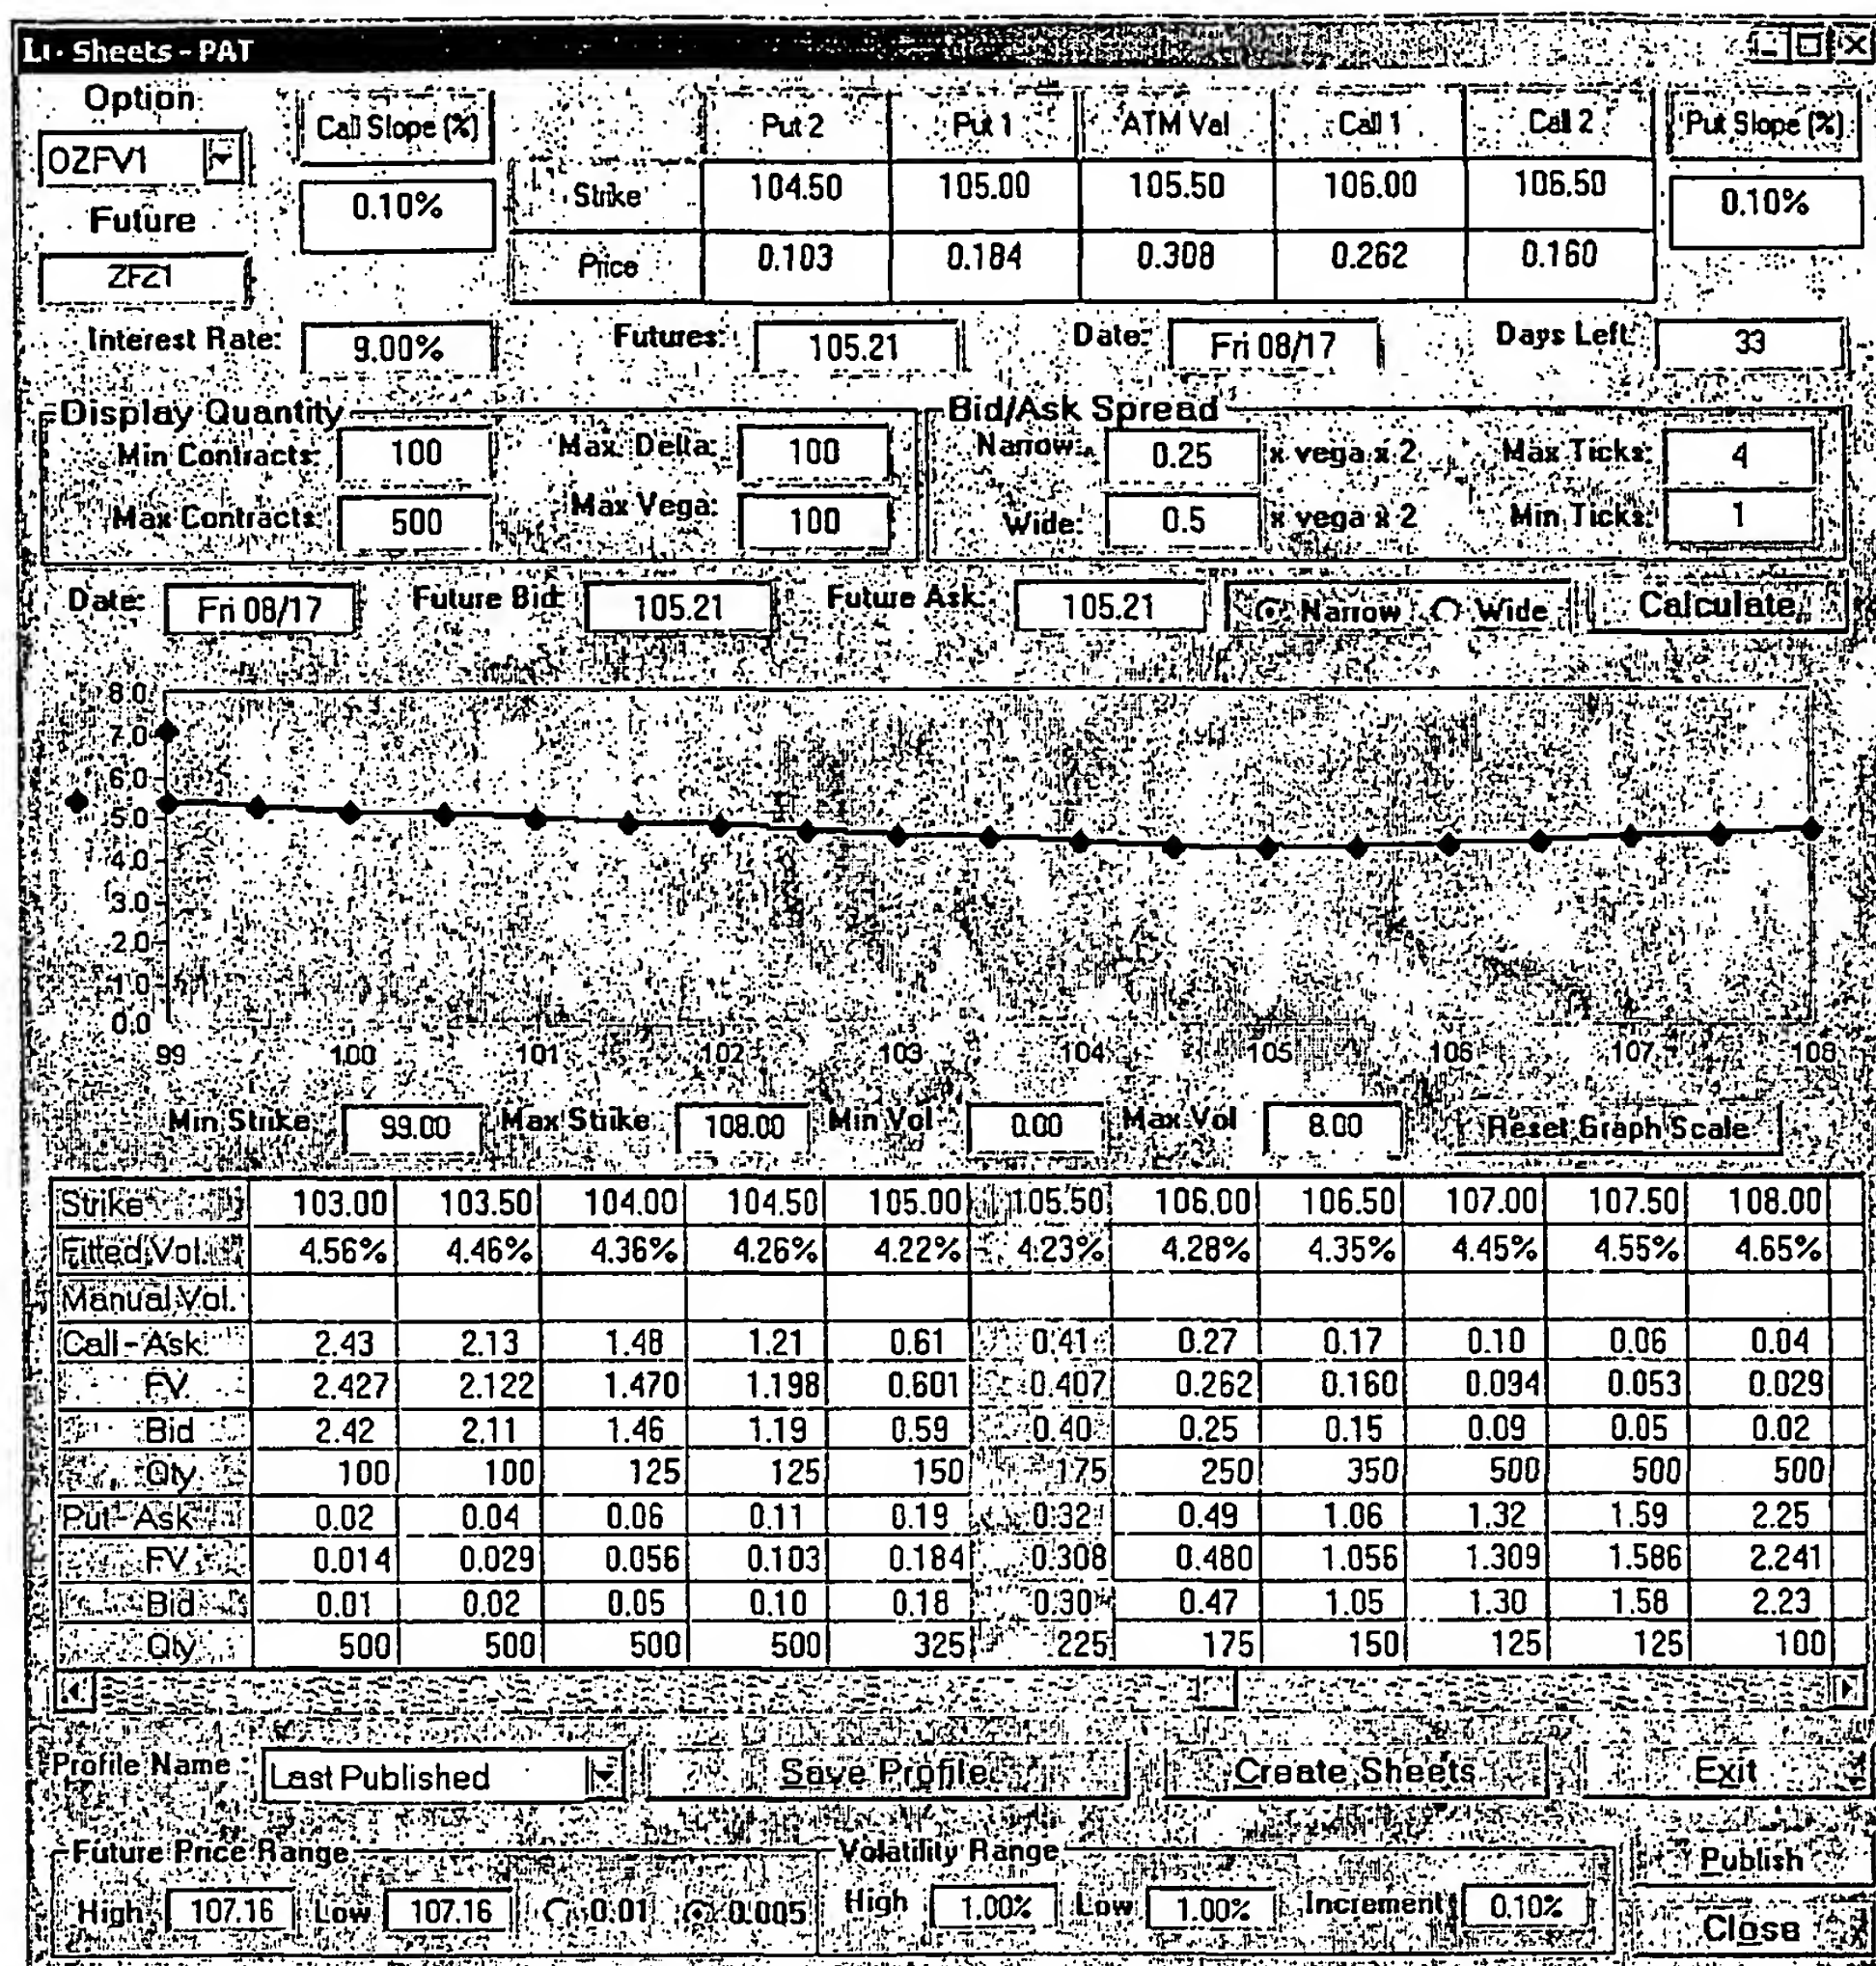 Sheets - PAT
Option Call Slope (%) Put 2 Put 1 ATM Val Call 1 Call 2 Put Slope (%)
OZFV1 Strike 104.50 105.00 105.50 106.00 106.50
Future 0.10% 0.10%
ZFZ1 Price 0.103 0.184 0.308 0.262 0.160
Interest Rate: 9.00% Futures: 105.21 Date: Fri 08/17 Days Left: 33
Display Quantity Bid/Ask Spread
Min Contracts: 100 Max. Delta: 100 Narrow: 0.25 x vega x 2 Max Ticks: 4
Max Contracts: 500 Max Vega: 100 Wide: 0.5 x vega x 2 Min Ticks: 1
Date: Fri 08/17 Future Bid: 105.21 Future Ask: 105.21 Narrow Wide Calculate
8.0
7.0
6.0
5.0
4.0
3.0
2.0
1.0
0.0
99 100 101 102 103 104 105 106 107 108
Min Strike 99.00 Max Strike 108.00 Min Vol 0.00 Max Vol 8.00 Reset Graph Scale
Strike 103.00 103.50 104.00 104.50 105.00 105.50 106.00 106.50 107.00 107.50 108.00
Fitted Vol. 4.56% 4.46% 4.36% 4.26% 4.22% 4.23% 4.28% 4.35% 4.45% 4.55% 4.65%
Manual Vol.
Call - Ask 2.43 2.13 1.48 1.21 0.61 0.41 0.27 0.17 0.10 0.06 0.04
FV 2.427 2.122 1.470 1.198 0.601 0.407 0.262 0.160 0.094 0.053 0.029
Bid 2.42 2.11 1.46 1.19 0.59 0.40 0.25 0.15 0.09 0.05 0.02
Qty 100 100 125 125 150 175 250 350 500 500 500
Put - Ask 0.02 0.04 0.06 0.11 0.19 0.32 0.49 1.06 1.32 1.59 2.25
FV 0.014 0.029 0.056 0.103 0.184 0.308 0.480 1.056 1.309 1.586 2.241
Bid 0.01 0.02 0.05 0.10 0.18 0.30 0.47 1.05 1.30 1.58 2.23
Qty 500 500 500 500 325 225 175 150 125 125 100
Profile Name Last Published Save Profile Create Sheets Exit
Future Price Range Volatility Range Publish
High 107.16 Low 107.16 0.01 0.005 High 1.00% Low 1.00% Increment 0.10%
Close